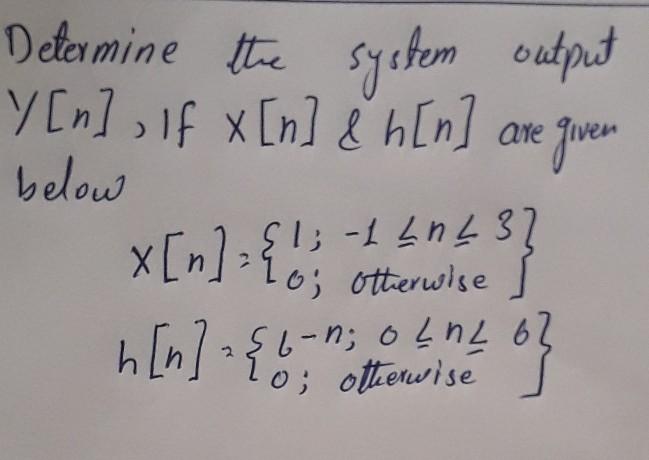 Determine the system output
Y[n], If X[n] & h[n] are given
below
X[n] = {1; -1 ≤ n ≤ 3}
{0; otherwise}
h[n] = {6-n; 0 ≤ n ≤ 6}
{0; otherwise}